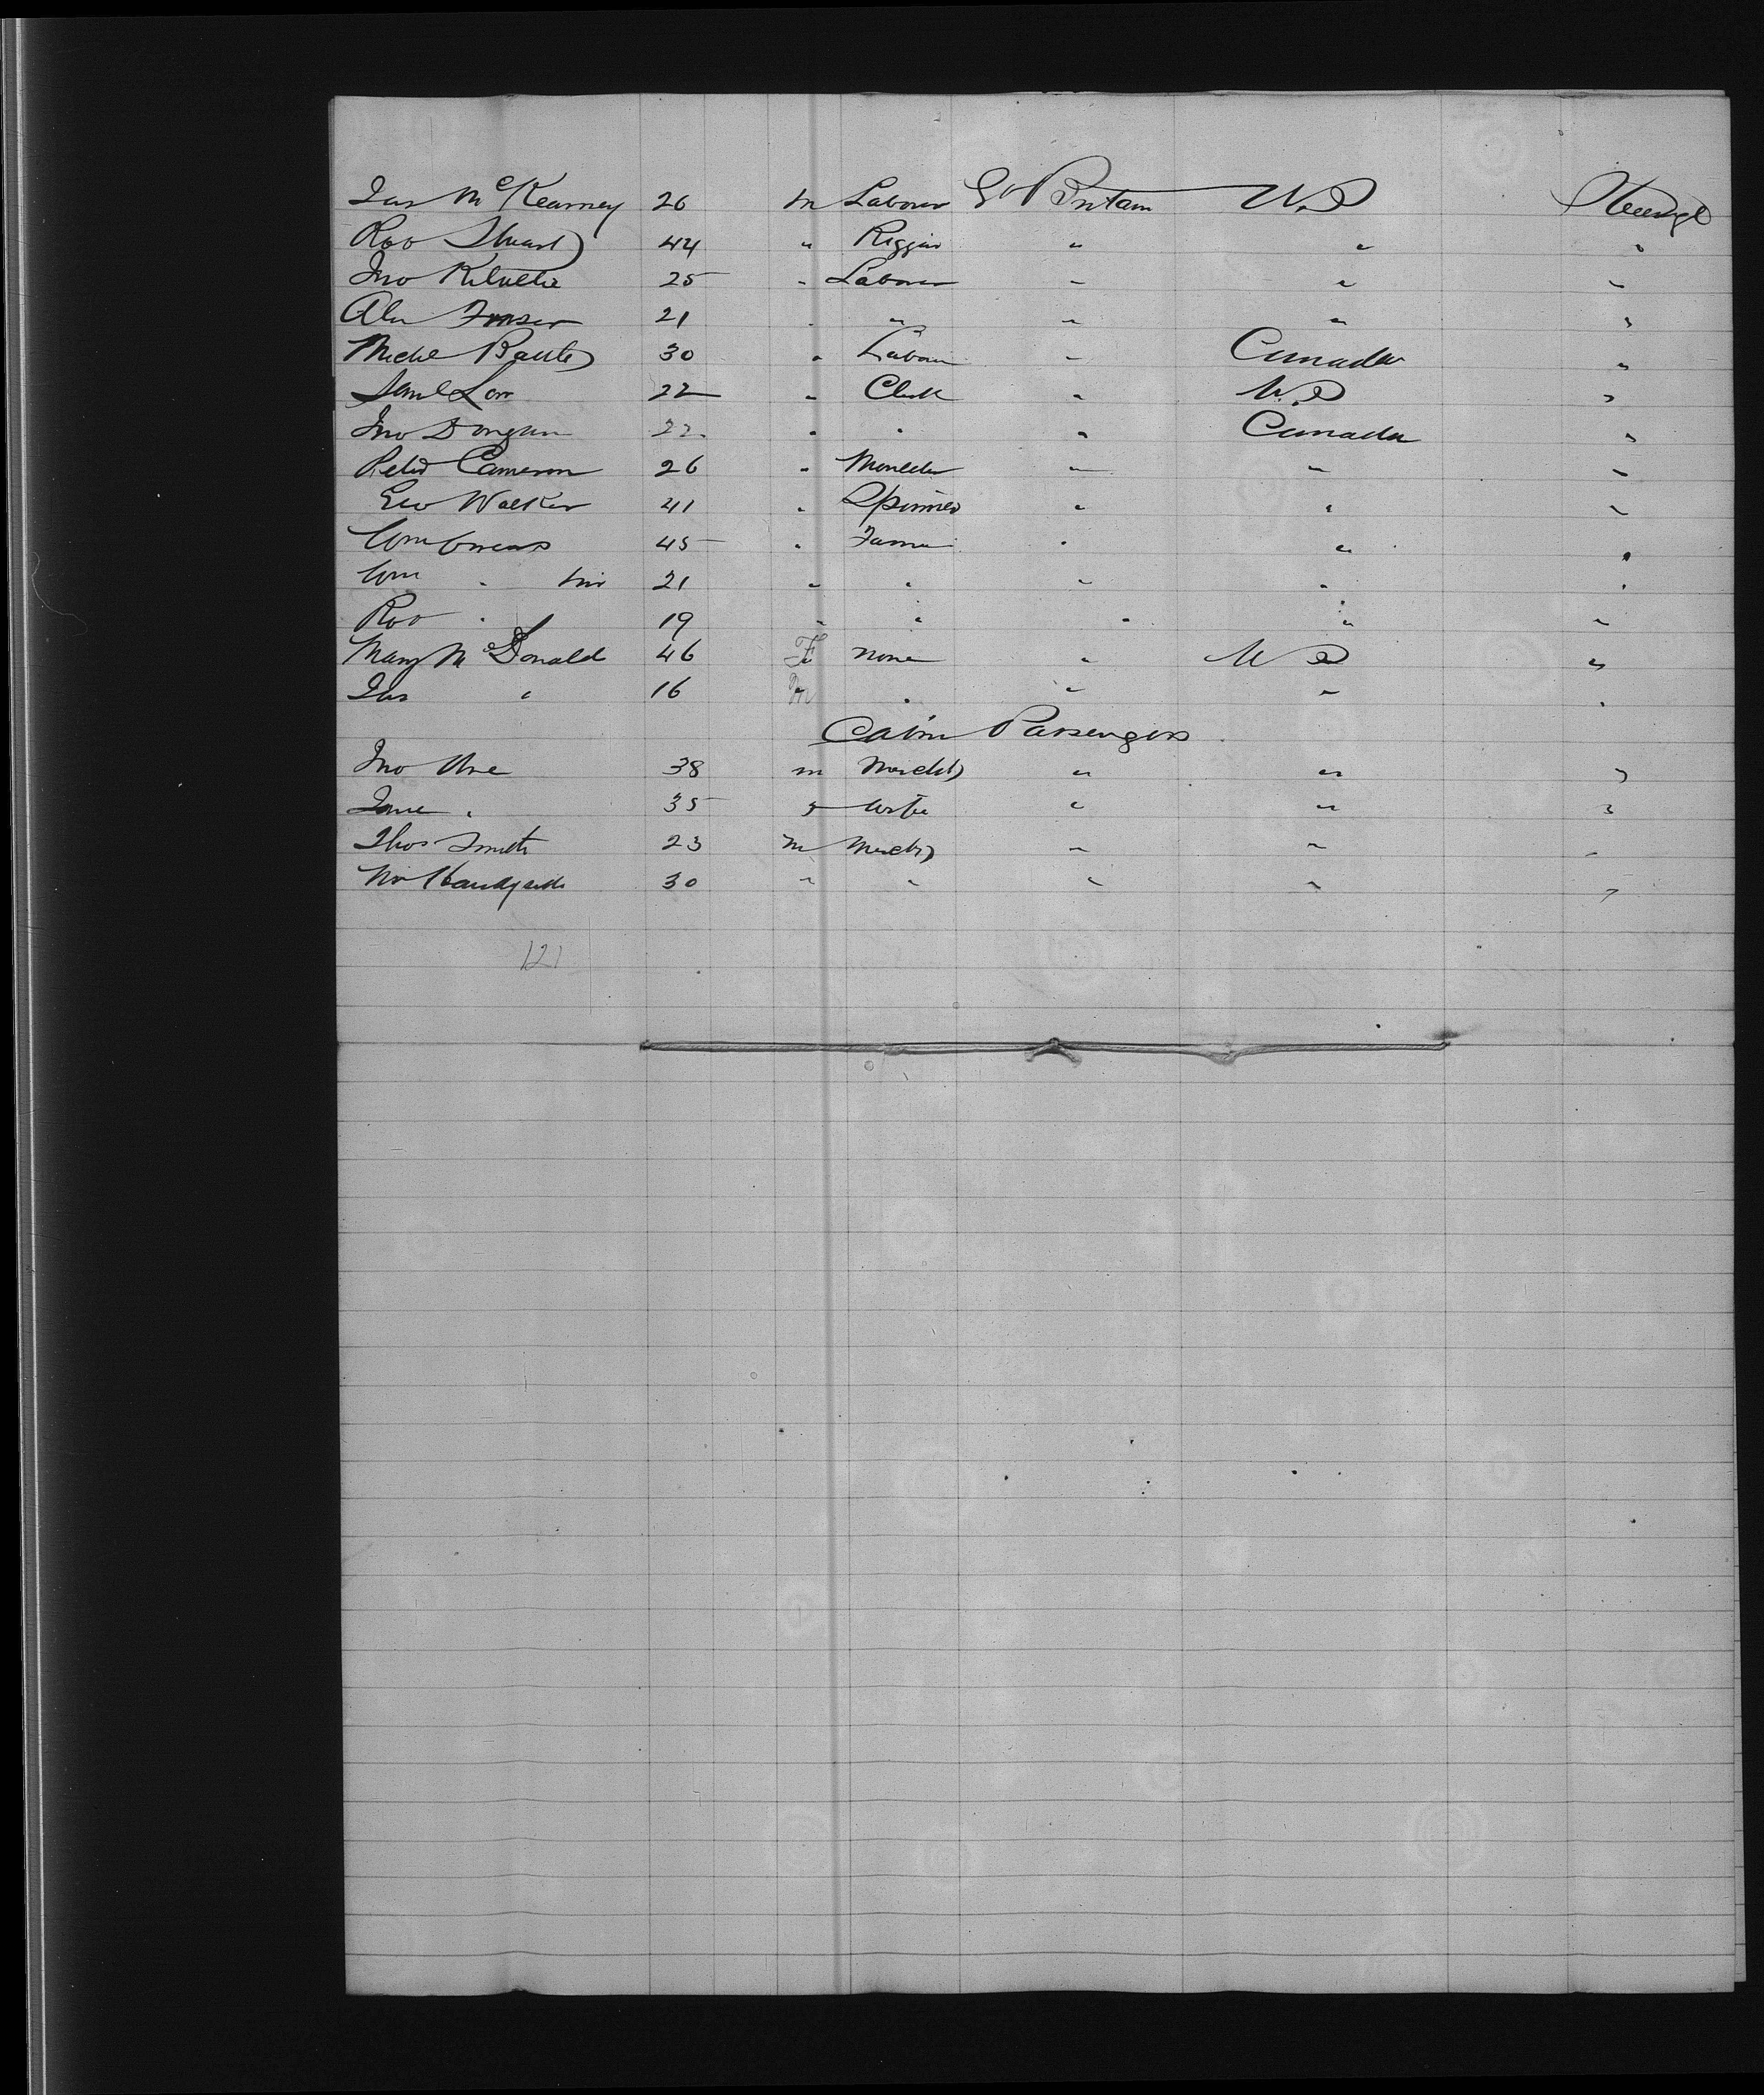 Jas McKearney 26 m Laborer Gt Britain U.S Steerage
Rob Stuart 44 " Rigger " " "
Jno 25 " Laborer " " "
Alex Fraser 21 " " " " "
Michl 30 " Labour " Canada "
Saml 22 " Clerk " U.S "
Jno Dongan 22 " " " Canada "
Peter Cameron 26 " Moulder " " "
Geo Walker 41 " Spinner " " "
Wm 45 " Farmer " " "
Wm " Jnr 21 " " " " "
Rob " 19 " " " " "
Mary McDonald 46 F none " U S "
Jas " 16 m " " " "
Cabin Passengers
Jno Ure 38 m Mercht " " "
Jane " 35 f Wife " " "
Thos Smith 23 m Mercht " " "
Handyside 30 " " " " "
121